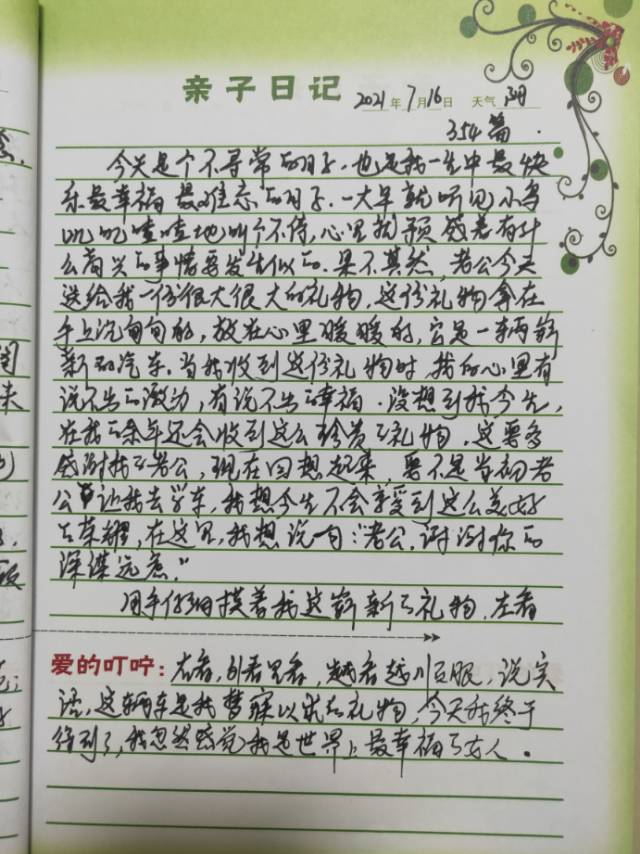 亲子日记 2021年7月16日 天气 阴
354篇.
今天是个不寻常的日子.也是我一生中最快
乐最幸福最难忘的日子.一大早就听见小鸟
叽叽喳喳地叫个不停,心里就预感着有什
么高兴的事情要发生似的.果不其然,老公今天
送给我一份很大很大的礼物,这份礼物拿在
手上沉甸甸的,放在心里暖暖的,它是一辆崭
新的汽车.当我收到这份礼物时,我的心里有
说不出的激动,有说不出的幸福.没想到我今生,
在我的余年还会收到这么珍贵的礼物,这要多
感谢我的老公,现在回想起来,要不是当初老
公让我去学车,我想今生不会享受到这么美好
的荣耀,在这里,我想说句:“老公,谢谢你的
深谋远虑.”
用手仔细摸着我这崭新的礼物,左看
爱的叮咛:右看,外看里看,越看越川页眼,说实
话,这辆车是我梦寐以求的礼物,今天我终于
得到了,我忽然感觉我是世界上最幸福的女人.